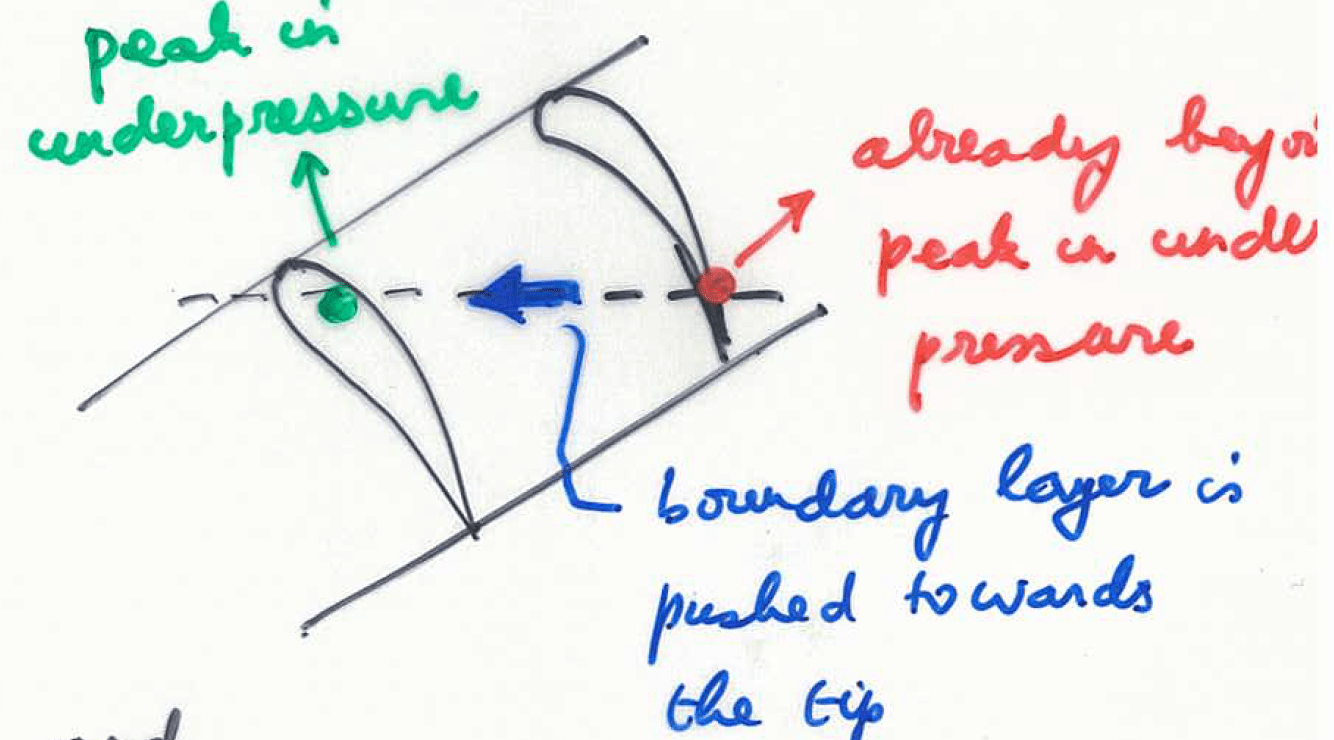 peak in
underpressure
already
peak in
pressure
boundary layer is
pushed towards
the tip